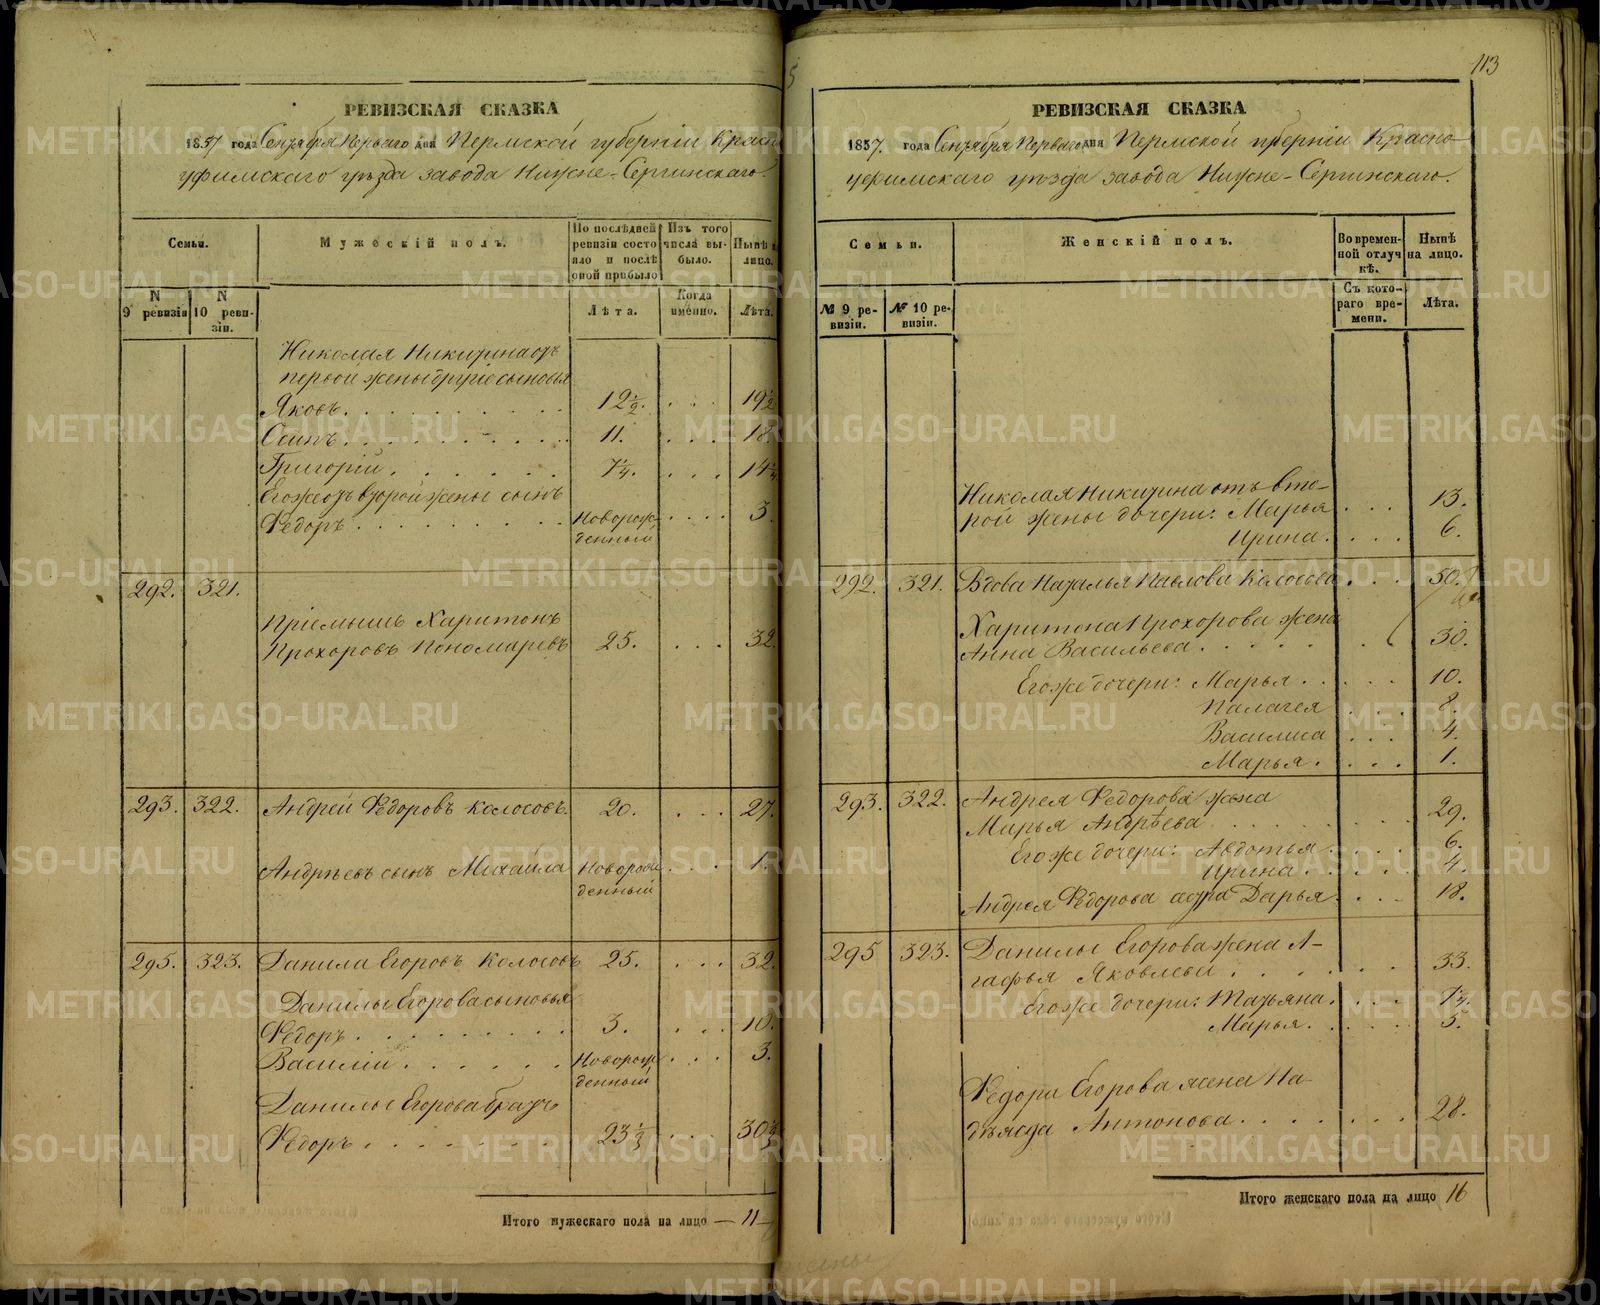 РЕВИЗСКАЯ СКАЗКА
1857 года Сентября Перваго дня Пермской губерніи Красно
уфимскаго уѣзда завода Нижне-Сергинскаго.
Семьи.
Мужескій полъ.
По послѣдней ревизіи состояло и послѣ оной прибыло
Изъ того числа выбыло.
Нынѣ на лицо.
N 9 ревизіи
N 10 ревизіи.
Лѣта.
Когда именно.
Лѣта.
Николая Никитина отъ
первой жены другіе сыновья
Яковъ. 12½. 19½
Осипъ. 11. 18.
Григорій. 7¼. 14¼
Его же отъ второй жены сынъ
Федоръ. Новорожденный 3.
292. 321.
Пріемышъ Харитонъ
Прохоровъ Пономаревъ 25. 32.
293. 322. Андрей Федоровъ Колосовъ. 20. 27.
Андреевъ сынъ Михайла Новорожденный 1.
295. 323. Данила Егоровъ Колосовъ 25. 32.
Данилы Егорова сыновья
Федоръ. 3. 10.
Василій. Новорожденный 3.
Данилы Егорова братъ
Федоръ. 23⅓ 30⅓
Итого мужескаго пола на лицо — 11 —
113
РЕВИЗСКАЯ СКАЗКА
1857. года Сентября Перваго дня Пермской губерніи Красно-
уфимскаго уѣзда завода Нижне-Сергинскаго.
Семьи.
Женскій полъ.
Во временной отлучкѣ.
Нынѣ на лицо.
№ 9 ревизіи.
№ 10 ревизіи.
Съ котораго времени.
Лѣта.
Николая Никитина отъ вто-
рой жены дочери: Марья 13.
Ирина. 6.
292. 321. Вдова Наталья Павлова Колосова. 50.
Харитона Прохорова жена
Анна Васильева. 30.
Его же дочери: Марья. 10.
Палагея 8.
Василиса 4.
Марья. 1.
293. 322. Андрея Федорова жена
Марья Андрѣева 29.
Его же дочери: Авдотья. 6.
Ирина. 4.
Андрея Федорова сестра Дарья. 18.
295 323. Данилы Егорова жена А-
гафья Яковлева. 33.
Его же дочери: Татьяна. 7¼.
Марья. 5.
Федора Егорова жена На-
дѣжда Антонова. 28.
Итого женскаго пола на лицо 16
METRIKI.GASO-URAL.RU